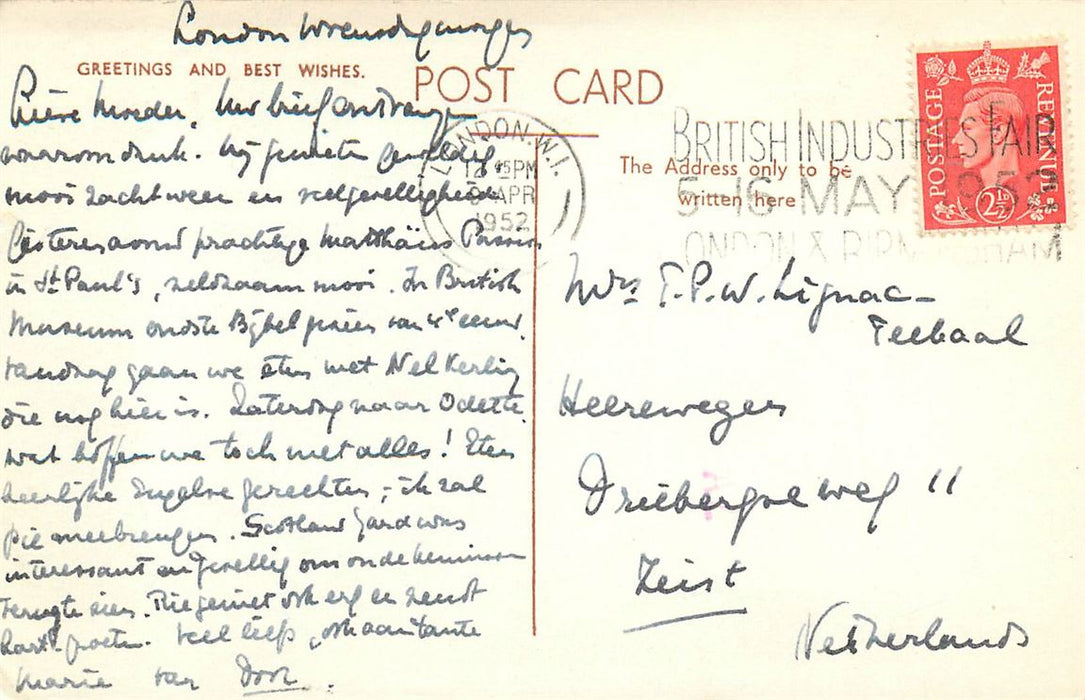 London Woensdagmorgen
GREETINGS AND BEST WISHES.
POST CARD
Lieve Moeder, Uw brief ontvangen
waarom dank. Wij genieten geweldig
mooi zacht weer en veel gezelligheid.
Gisterenavond prachtige Matthäus Passion
in St Paul's, zeldzaam mooi. In British
Museum oudste Bijbel gezien van 4e eeuw.
Vandaag gaan we eten met Nel Kerling
die nog hier is. Zaterdag naar Odette.
Wat boffen we toch met alles! Eten
heerlijke Engelse gerechten, ik zal
pie meebrengen. Scotland Yard was
interessant en gezellig om oude kennissen
terug te zien. Rie geniet ook erg en zendt
hart. groeten. Veel liefs, ook aan tante
Marie van Door.
LONDON. W.1.
12 15 PM
APR
1952
BRITISH INDUSTRIES FAIR
5-16 MAY 1952
LONDON & BIRMINGHAM
POSTAGE REVENUE
2½D
The Address only to be
written here
Mrs T.P.W. Lignac-
Teebaal
Heerewegen
Driebergseweg 11
Zeist
Netherlands